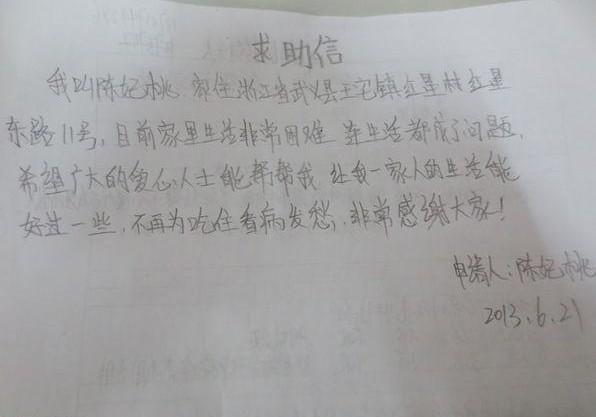 求助信
我叫陈妃桃 家住浙江省武义县王宅镇红星村红星
东路11号，目前家里生活非常困难 连生活都成了问题，
希望广大的爱心人士能帮帮我 让我一家人的生活能
好过一些，不再为吃住看病发愁，非常感谢大家！
申请人：陈妃桃
2013.6.21